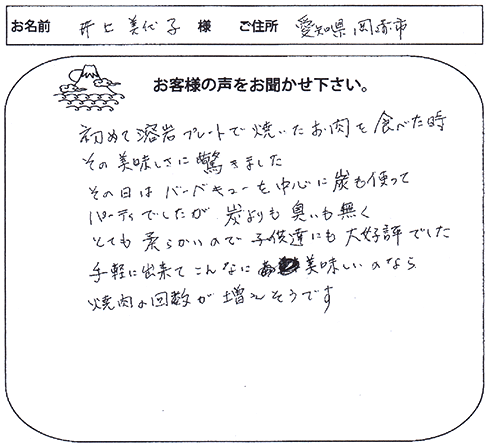 お名前 井上 美代子 様 ご住所 愛知県岡崎市
お客様の声をお聞かせ下さい。
初めて溶岩プレートで焼いたお肉を食べた時
その美味しさに驚きました
その日はバーベキューを中心に炭も使って
パーティでしたが 炭よりも臭いも無く
とても柔らかいので子供達にも大好評でした
手軽に出来てこんなに美味しいのなら
焼肉の回数が増えそうです